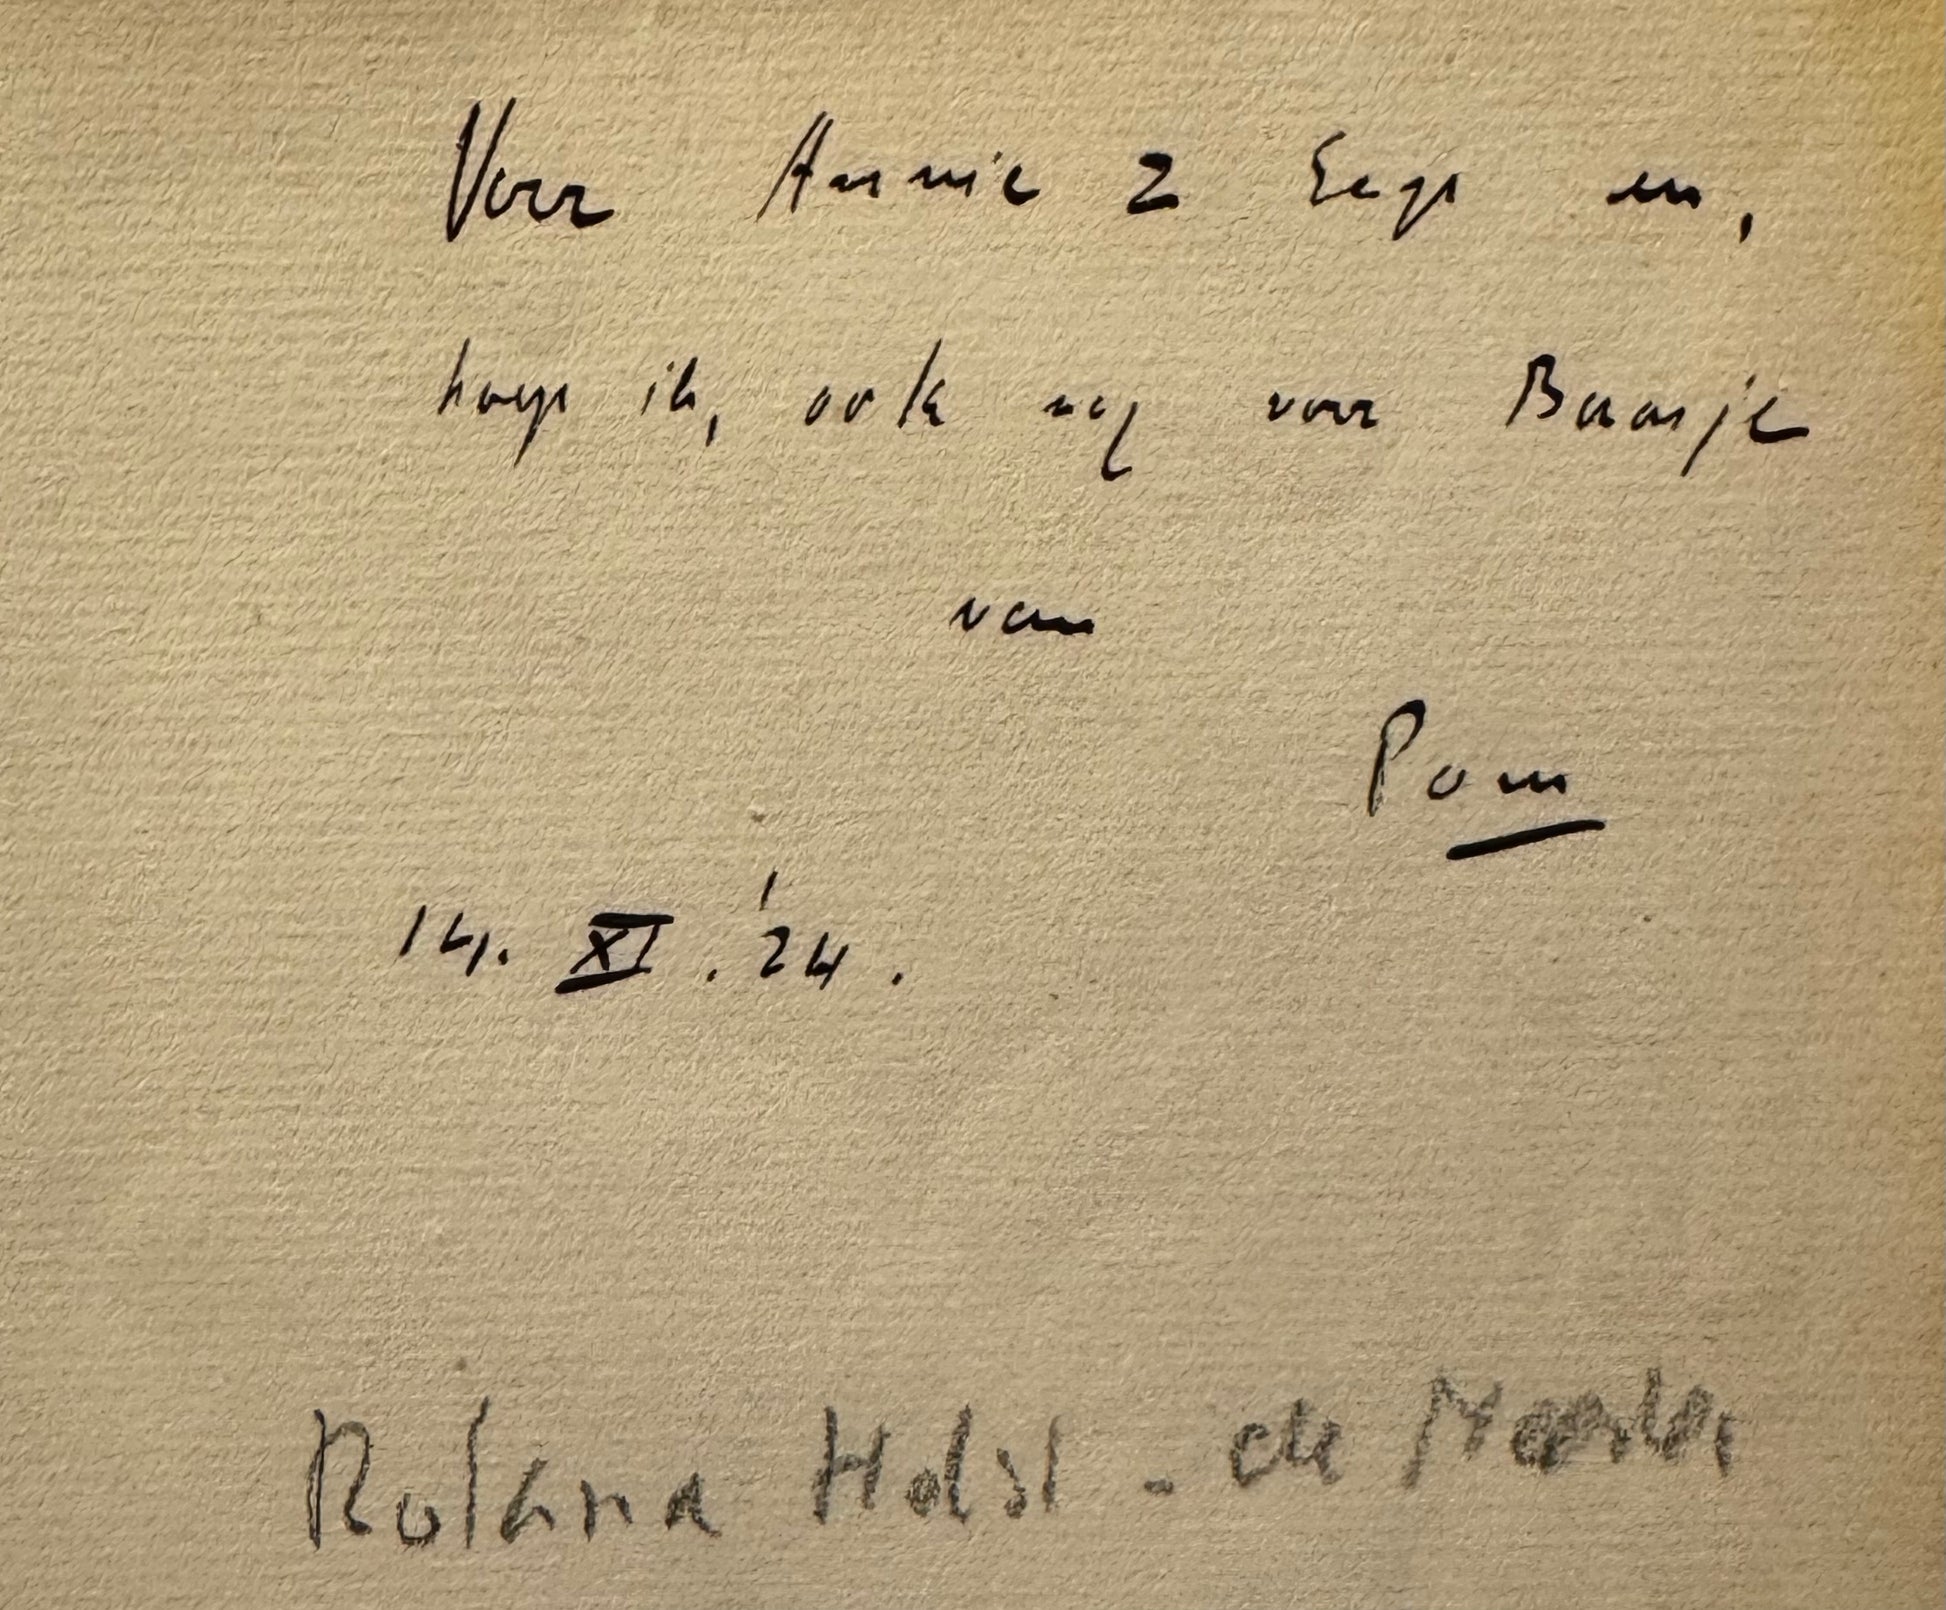 Voor Annie 2 en,
hoop ik, ook nog voor Baasje
van
Pom
14. XI. '24.
Roland Holst - de Meester